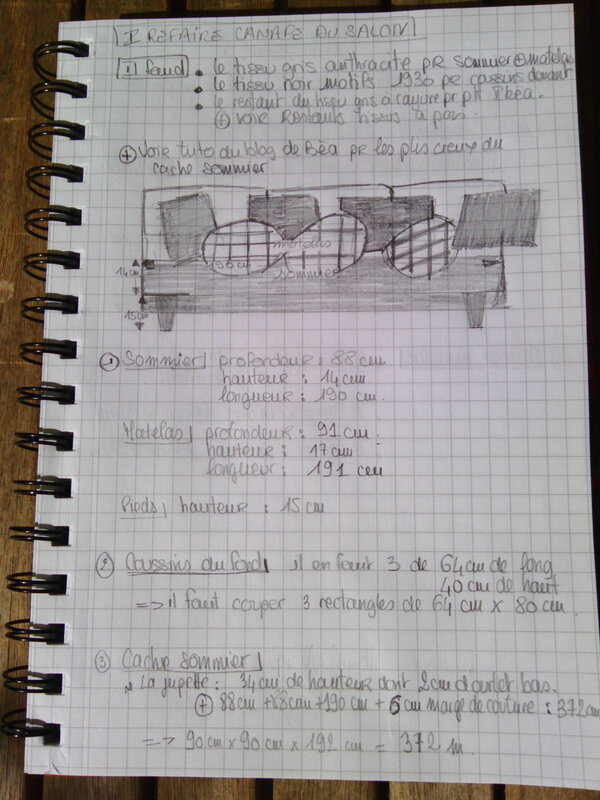 I REFAIRE CANAPE DU SALON
Il faut • le tissu gris anthracite pr sommier ⊕ matelas
• le tissu noir motifs 1930 pr coussins devant
• le restant du tissu gris à rayure pr ptt Ibéa.
⊕ voir Restants tissus à part.
⊕ Voir tuto du blog de Béa pr les plis creux du
cache sommier
matelas
sommier
14cm
15cm
① Sommier profondeur : 88 cm
hauteur : 14cm
longueur : 190 cm.
Matelas profondeur : 91 cm.
hauteur : 17 cm
longueur : 191 cm
Pieds, hauteur : 15 cm
② Coussins du fond il en faut 3 de 64cm de long
40cm de haut
=> il faut couper 3 rectangles de 64 cm x 80 cm.
③ Cache sommier
La jupette : 34cm de hauteur dont 2cm d'ourlet bas.
⊕ 88cm +88cm +190 cm + 6cm marge de couture : 372cm
=> 90cm x 90 cm x 192 cm = 372 m.